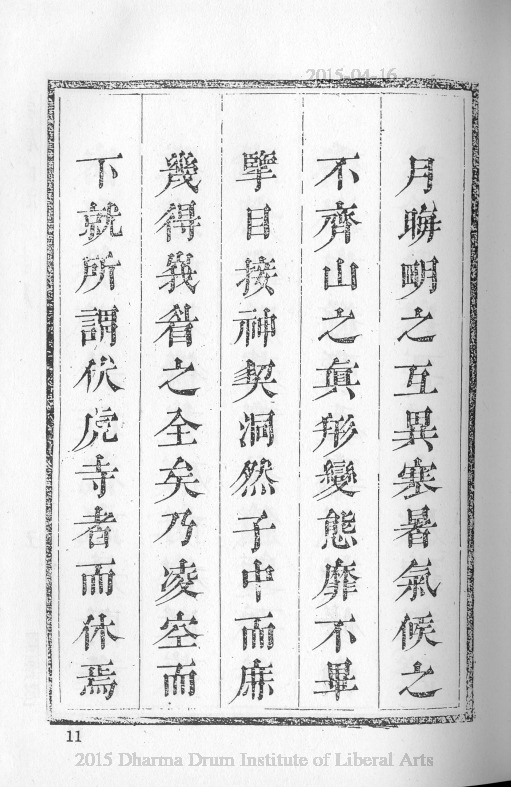 2015-04-16
月晦明之互異寒暑氣候之
不齊山之真形變態靡不畢
擧目接神契洞然于中而庶
幾得我省之全矣乃凌空而
下就所謂伏虎寺者而休焉
11
2015 Dharma Drum Institute of Liberal Arts